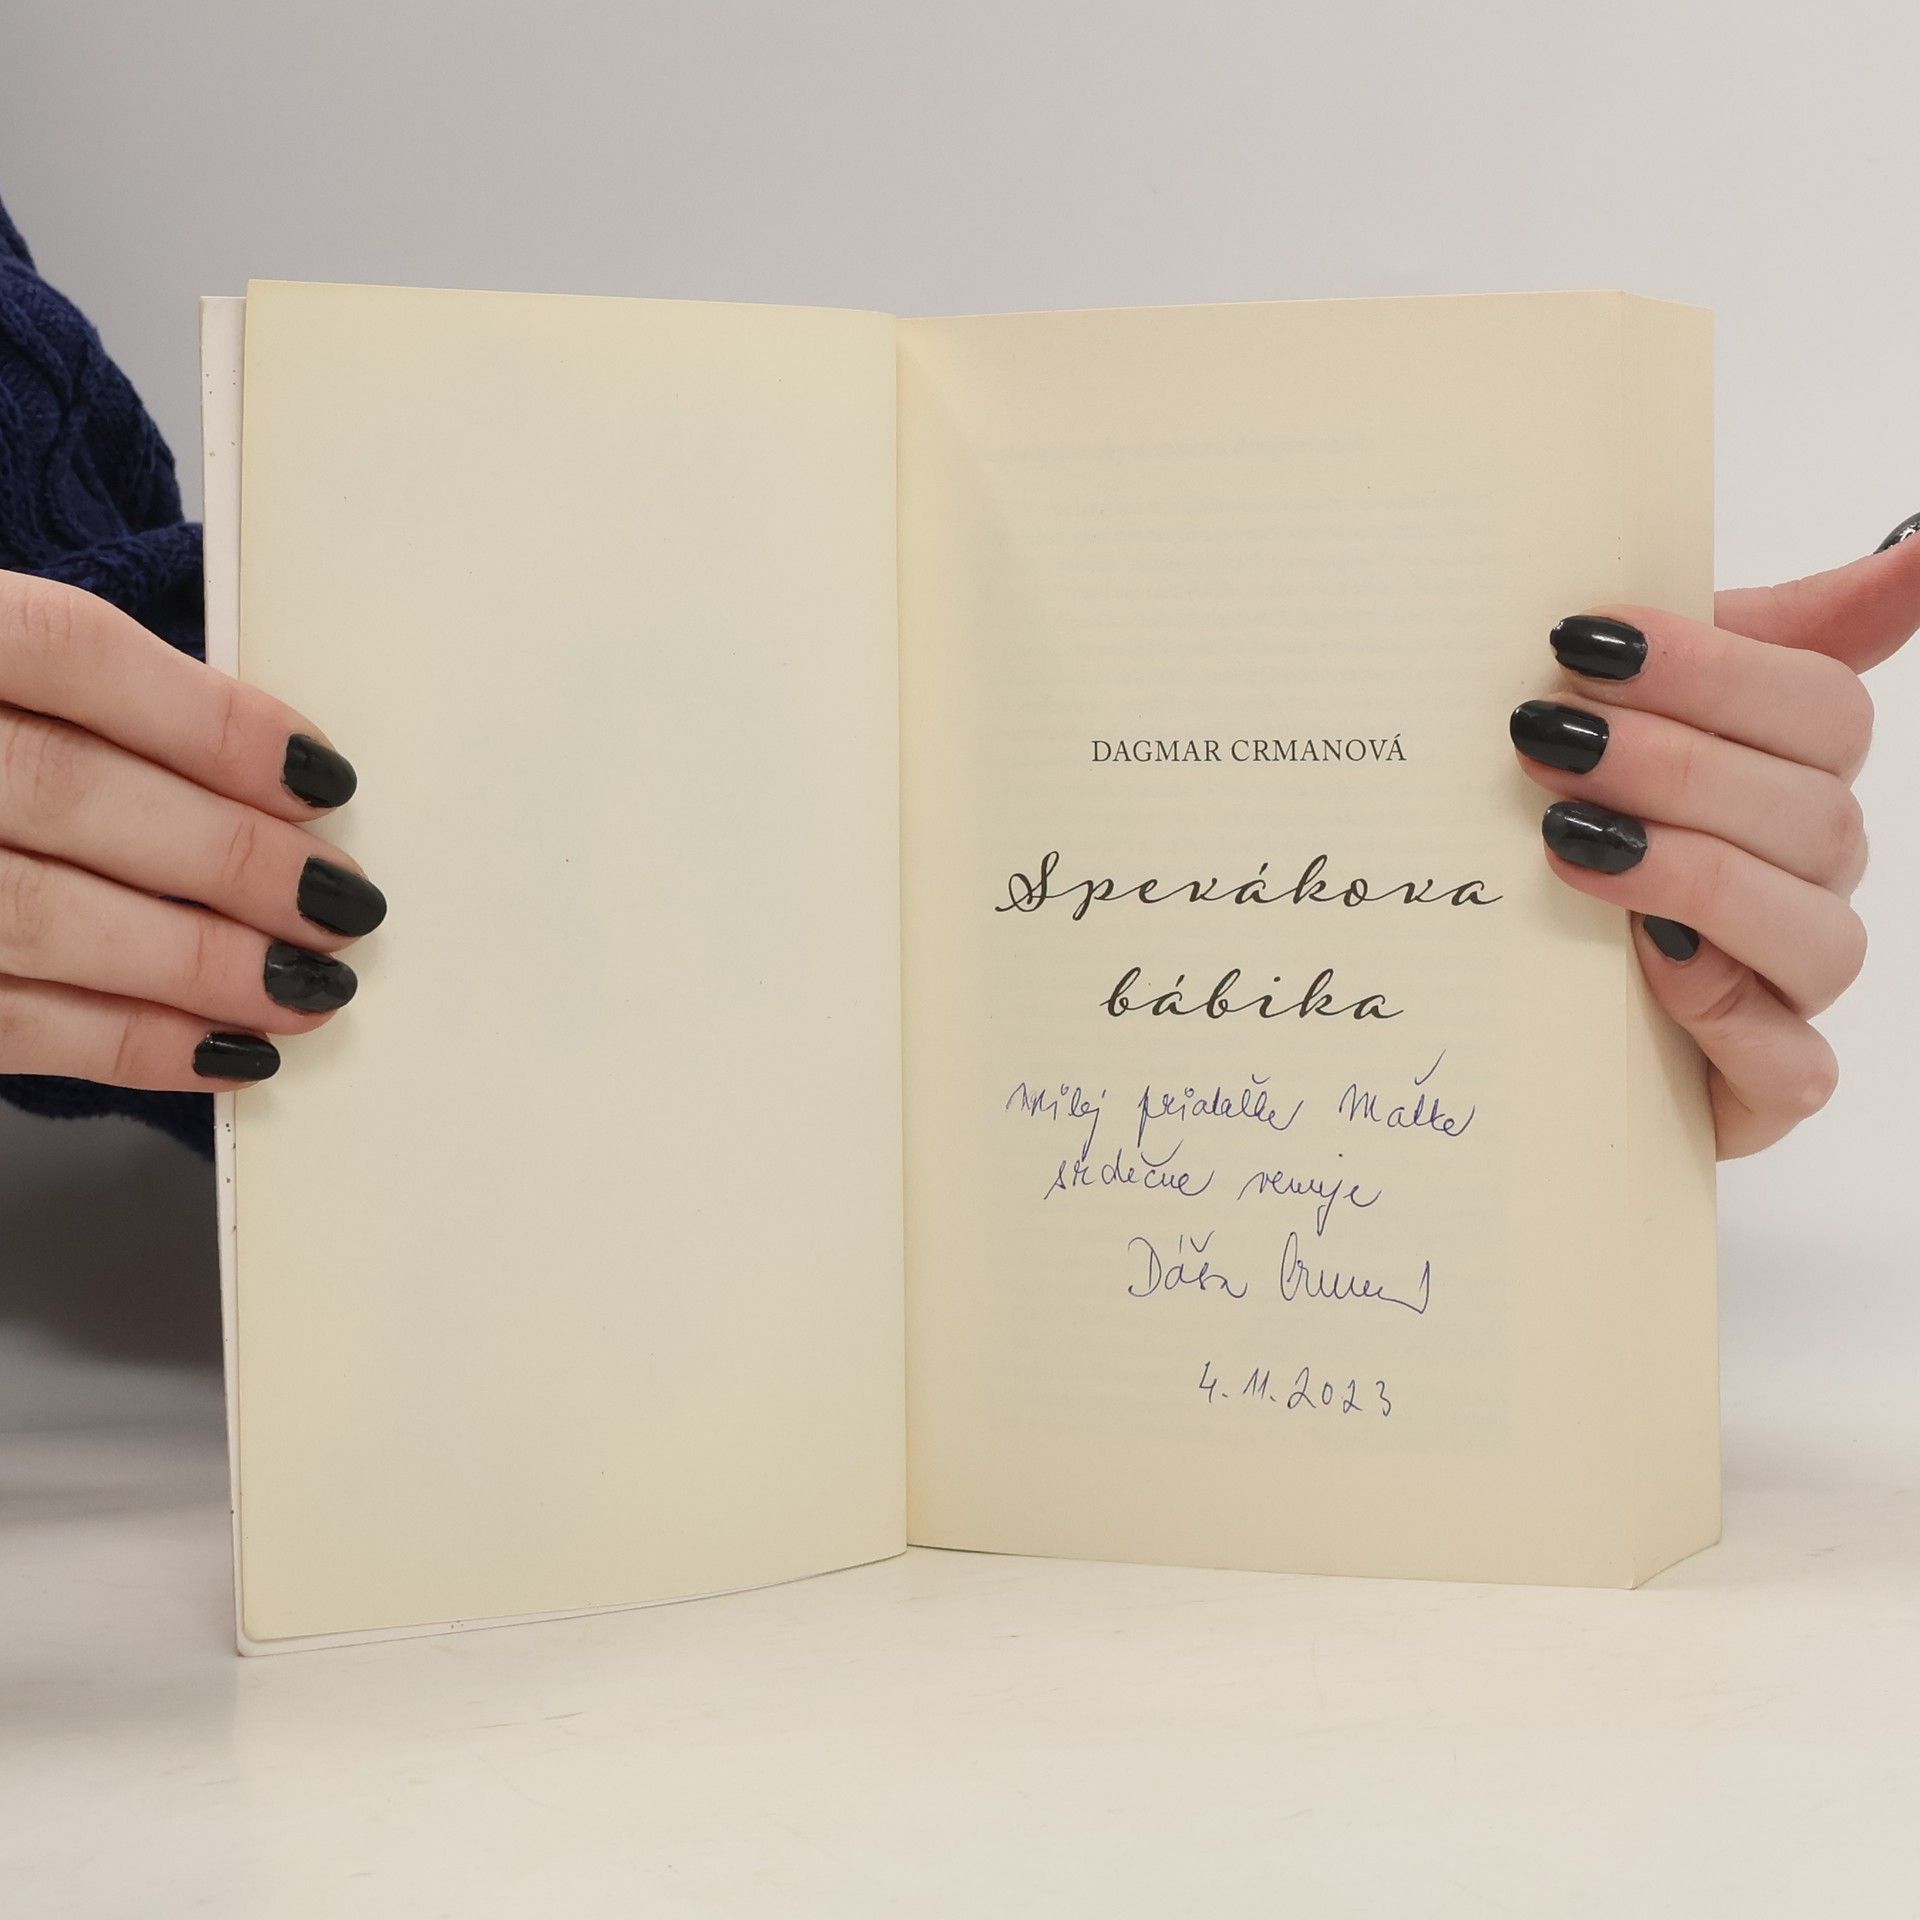 DAGMAR CRMANOVÁ
Spevákova
bábika
Milej priateľke Maťke
srdečne venuje
Dáša Crmanová
4.11.2023